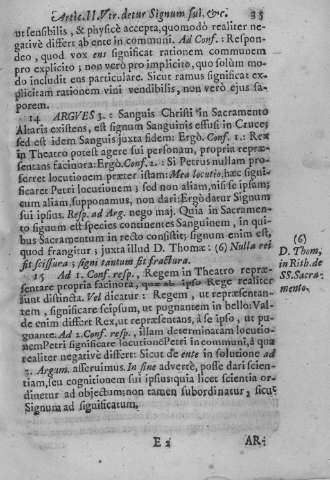 Artic. II. Vtr. detur Signum sui. &c. 35
ut sensibilis, & physicè accepta, quomodò realiter ne-
gativè differt ab ente in communi. Ad Conf.: Respon-
deo, quod vox ens significat rationem communem
pro explicito; non verò pro implicito, quo solùm mo-
do includit ens particulare. Sicut ramus significat ex-
plicitam rationem vini vendibilis, non verò ejus sa-
porem.
14 ARGVES 3.: Sanguis Christi in Sacramento
Altaris existens, est signum Sanguinis effusi in Cruce;
sed est idem Sanguis juxta fidem: Ergò. Conf. 1.: Rex
in Theatro potest agere sui personam, propria repræ-
sentans facinora: Ergò. Conf. 2.: Si Petrus nullam pro-
ferret locutionem præter istam: Mea locutio, hæc signi-
ficaret Petri locutionem; sed non aliam, nisi se ipsam;
cum aliam, supponamus, non dari: Ergò datur Signum
sui ipsus. Resp. ad Arg. nego maj. Quia in Sacramen-
to signum est species continentes Sanguinem, in qui-
bus Sacramentum in recto consistit; signum enim est,
quod frangitur; juxta illud D. Thomæ: (6) Nulla rei
fit scissura; signi tantum fit fractura.
(6)
D. Thom.
in Rith. de
SS. Sacra-
mento.
15 Ad 1. Conf. resp., Regem in Theatro repræ-
sentare propria facinora, quæ ab ipso Rege realiter
sunt distincta. Vel dicatur: Regem, ut repræsentan-
tem, significare seipsum, ut pugnantem in bello: Val-
de enim differt Rex, ut repræsentans, à se ipso, ut pu-
gnante. Ad 2. Conf. resp., illam determinatam locutio-
nem Petri significare locutionē Petri in communi, à qua
realiter negativè differt: Sicut de ente in solutione ad
2. Argum. asseruimus. In fine advertè, posse dari scien-
tiam, seu cognitionem sui ipsius: quia licet scientia or-
dinetur ad objectum; non tamen subordinatur, sicut
Signum ad significatum.
E 2 AR-